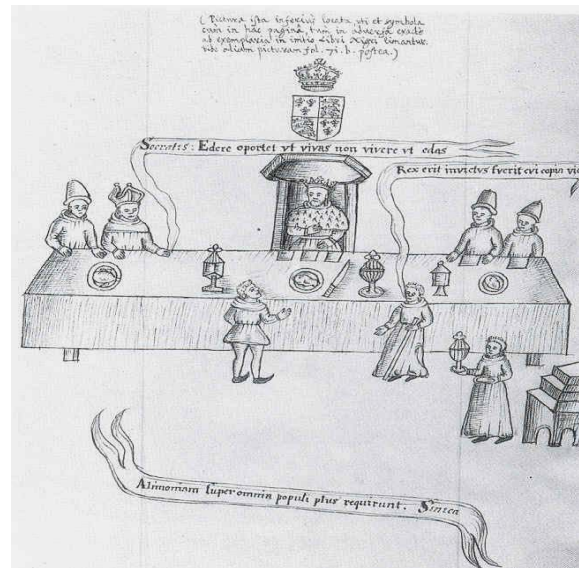 ( Pictura ista inferius locata, uti et symbola
cum in hac pagina, tum in adversa exacte
ad exemplaria in initio Libri Nigri limantur.
vide aliam picturam fol. 71. b. postea.)
Socratis: Edere oportet vt vivas non vivere vt edas
Rex erit invictus fverit cvi copia
Alimoniam super omnia populi plus requirunt. Sinica